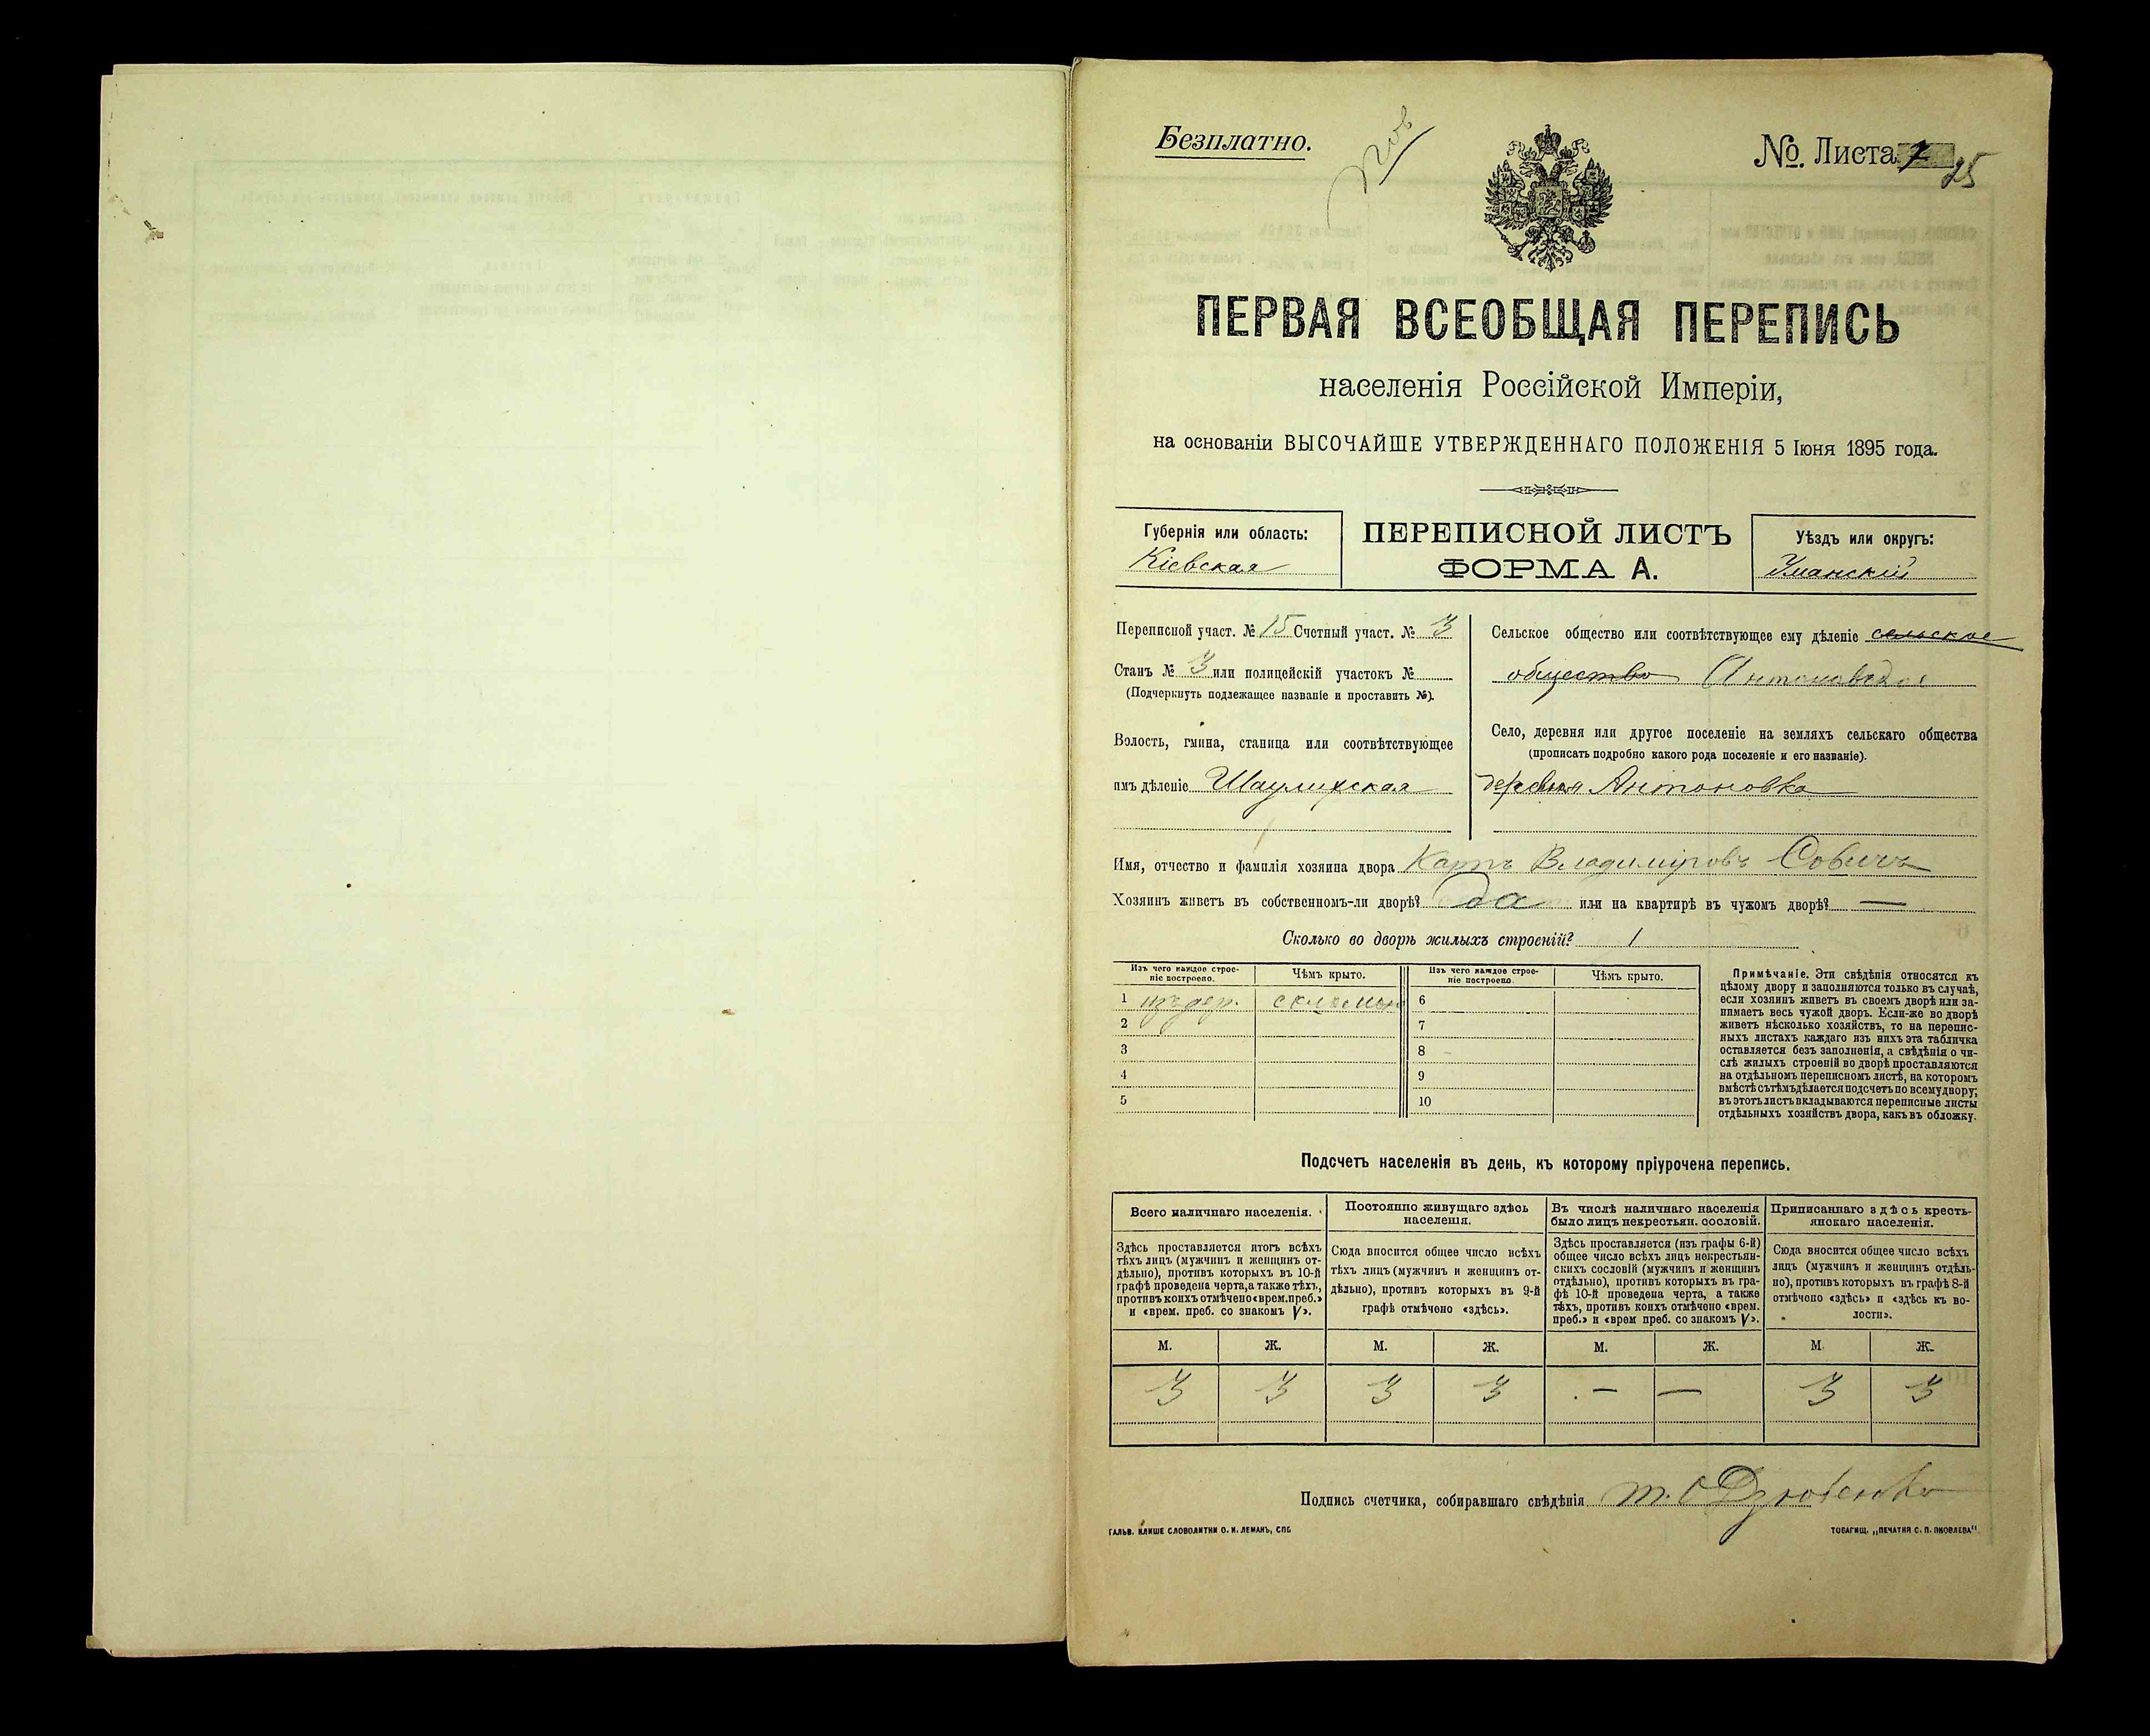 Безплатно.
№. Листа 7 25
ПЕРВАЯ ВСЕОБЩАЯ ПЕРЕПИСЬ
населенія Россійской Имперіи,
на основаніи ВЫСОЧАЙШЕ УТВЕРЖДЕННАГО ПОЛОЖЕНІЯ 5 Іюня 1895 года.
Губернія или область:
Кіевская
ПЕРЕПИСНОЙ ЛИСТЪ
ФОРМА А.
Уѣздъ или округъ:
Уманскій
Переписной участ. № 15 Счетный участ. № 3
Станъ № 3 или полицейскій участокъ №
(Подчеркнуть подлежащее названіе и проставить №).
Волость, гмина, станица или соотвѣтствующее
имъ дѣленіе
Сельское общество или соотвѣтствующее ему дѣленіе сельское
общество Антоновское
Село, деревня или другое поселеніе на земляхъ сельскаго общества
(прописать подробно какого рода поселеніе и его названіе).
деревня Антоновка
Имя, отчество и фамилія хозяина двора Карпъ Владиміровъ Совичъ
Хозяинъ живетъ въ собственномъ-ли дворѣ? Да или на квартирѣ въ чужомъ дворѣ? —
Сколько во дворѣ жилыхъ строеній? 1
Изъ чего каждое строе-
ніе построено.
Чѣмъ крыто.
Изъ чего каждое строе-
ніе построено.
Чѣмъ крыто.
1 изъ дер. соломою 6
2 7
3 8
4 9
5 10
Примѣчаніе. Эти свѣдѣнія относятся къ
цѣлому двору и заполняются только въ случаѣ,
если хозяинъ живетъ въ своемъ дворѣ или за-
нимаетъ весь чужой дворъ. Если-же во дворѣ
живетъ нѣсколько хозяйствъ, то на перепис-
ныхъ листахъ каждаго изъ нихъ эта табличка
оставляется безъ заполненія, а свѣдѣнія о чи-
слѣ жилыхъ строеній во дворѣ проставляются
на отдѣльномъ переписномъ листѣ, на которомъ
вмѣстѣ съ тѣмъ дѣлается подсчетъ по всему двору;
въ этотъ листъ вкладываются переписные листы
отдѣльныхъ хозяйствъ двора, какъ въ обложку.
Подсчетъ населенія въ день, къ которому пріурочена перепись.
Всего наличнаго населенія.
Здѣсь проставляется итогъ всѣхъ
тѣхъ лицъ (мужчинъ и женщинъ от-
дѣльно), противъ которыхъ въ 10-й
графѣ проведена черта, а также тѣхъ,
противъ коихъ отмѣчено «врем. преб.»
и «врем. преб. со знакомъ V».
Постоянно живущаго здѣсь
населенія.
Сюда вносится общее число всѣхъ
тѣхъ лицъ (мужчинъ и женщинъ от-
дѣльно), противъ которыхъ въ 9-й
графѣ отмѣчено «здѣсь».
Въ числѣ наличнаго населенія
было лицъ некрестьян. сословій.
Здѣсь проставляется (изъ графы 6-й)
общее число всѣхъ лицъ некрестьян-
скихъ сословій (мужчинъ и женщинъ
отдѣльно), противъ которыхъ въ гра-
фѣ 10-й проведена черта, а также
тѣхъ, противъ коихъ отмѣчено «врем.
преб.» и «врем преб. со знакомъ V».
Приписаннаго здѣсь кресть-
янскаго населенія.
Сюда вносится общее число всѣхъ
лицъ (мужчинъ и женщинъ отдѣль-
но), противъ которыхъ въ графѣ 8-й
отмѣчено «здѣсь» и «здѣсь къ во-
лости».
М. Ж. М. Ж. М. Ж. М. Ж.
3 3 3 3 — — 3 3
Подпись счетчика, собиравшаго свѣдѣнія
ГАЛЬВ. КЛИШЕ СЛОВОЛИТНИ О. И. ЛЕМАНЪ, СПБ
ТОВАРИЩ. „ПЕЧАТНЯ С. П. ЯКОВЛЕВА"